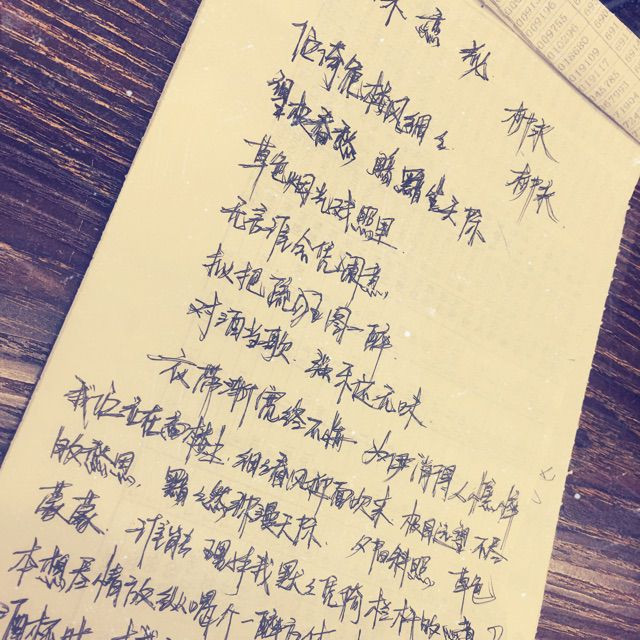 恋花
伫倚危楼风细々 柳永
望极春愁 黯黯生天际 柳永
草色烟光残照里
无言谁会凭阑意
拟把疏狂图一醉
对酒当歌 强乐还无味
衣带渐宽终不悔 为伊消得人憔悴
我伫立在高楼上 细々春风迎面吹来 极目远望 不尽
的愁思 黯々然弥漫天际 夕阳斜照 草色
蒙蒙 谁能理解我默々凭倚栏杆的心意?
本想尽情放纵喝个一醉方休
酒杯时